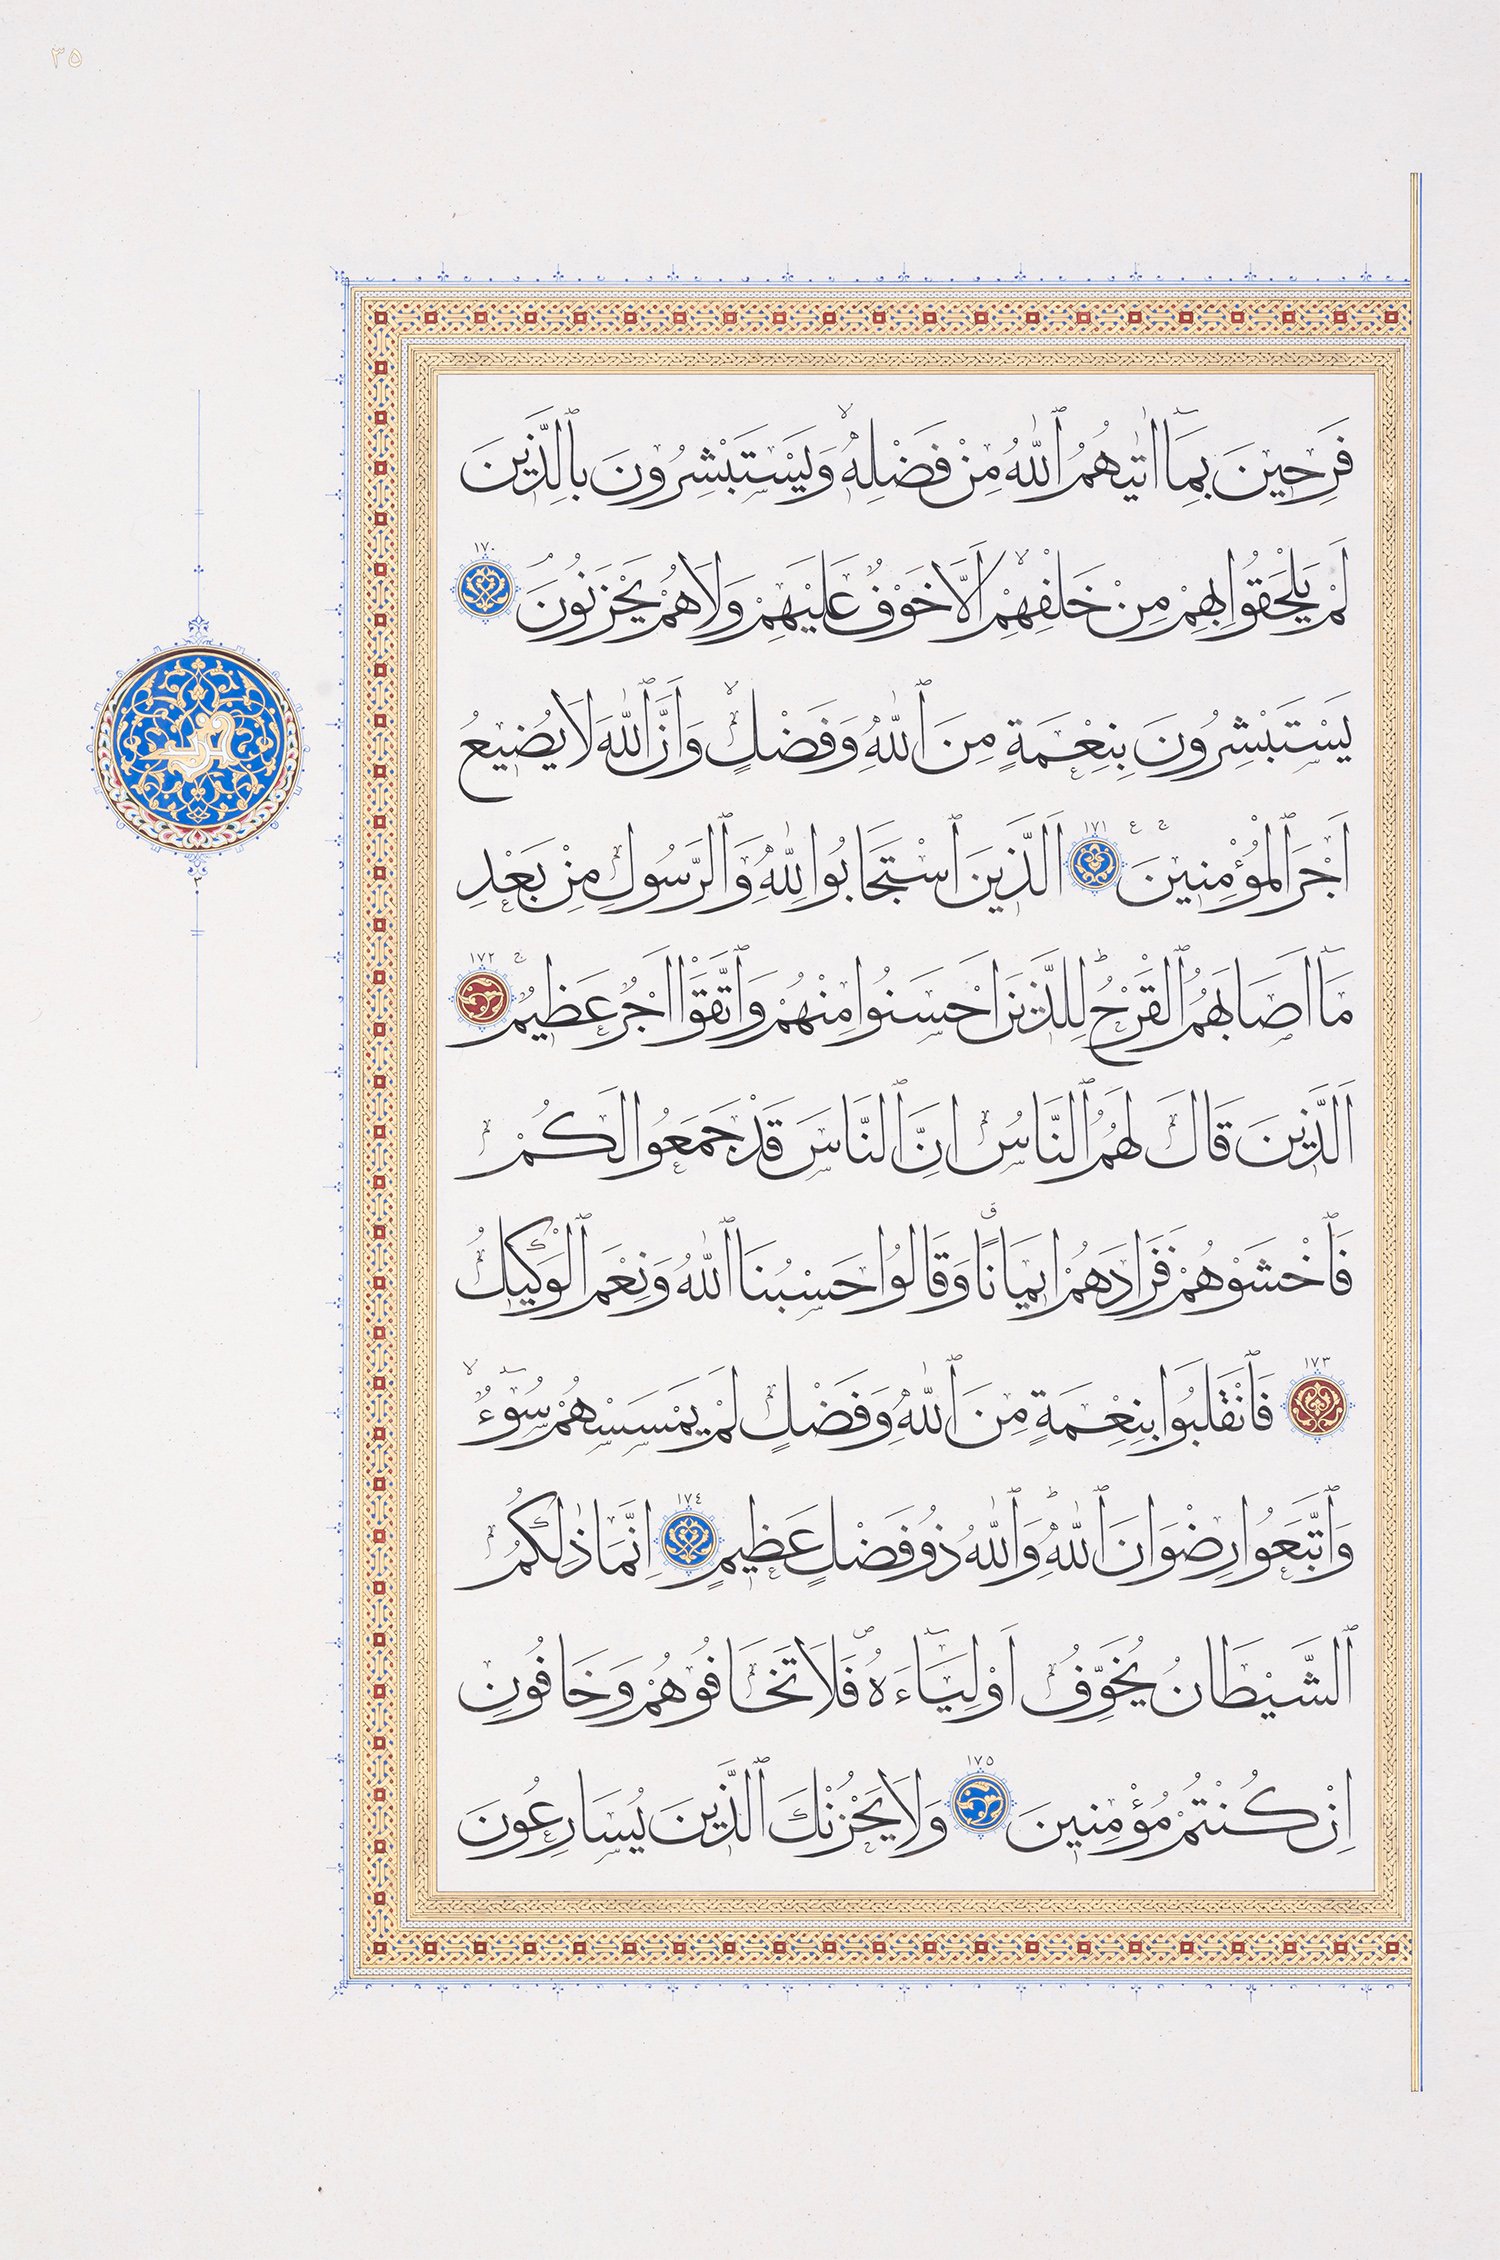 ٣٥
فَرِحِينَ بِمَٓا اٰتٰيهُمُ ٱللّٰهُ مِنْ فَضْلِهٖۙ وَيَسْتَبْشِرُونَ بِٱلَّذِينَ
لَمْ يَلْحَقُوا بِهِمْ مِنْ خَلْفِهِمْۙ اَلَّا خَوْفٌ عَلَيْهِمْ وَلَا هُمْ يَحْزَنُونَۘ ١٧٠
يَسْتَبْشِرُونَ بِنِعْمَةٍ مِنَ ٱللّٰهِ وَفَضْلٍۙ وَاَنَّ ٱللّٰهَ لَا يُضِيعُ
اَجْرَ ٱلْمُؤْمِنِينَ ١٧١ اَلَّذِينَ ٱسْتَجَابُوا لِلّٰهِ وَٱلرَّسُولِ مِنْ بَعْدِ
مَٓا اَصَابَهُمُ ٱلْقَرْحُۜ لِلَّذِينَ اَحْسَنُوا مِنْهُمْ وَٱتَّقَوْا اَجْرٌ عَظِيمٌ ١٧٢
اَلَّذِينَ قَالَ لَهُمُ ٱلنَّاسُ اِنَّ ٱلنَّاسَ قَدْ جَمَعُوا لَكُمْ
فَٱخْشَوْهُمْ فَزَادَهُمْ اِيمَانًاۗ وَقَالُوا حَسْبُنَا ٱللّٰهُ وَنِعْمَ ٱلْوَكِيلُ
١٧٣ فَٱنْقَلَبُوا بِنِعْمَةٍ مِنَ ٱللّٰهِ وَفَضْلٍ لَمْ يَمْسَسْهُمْ سُٓوءٌۙ
وَٱتَّبَعُوا رِضْوَانَ ٱللّٰهِۜ وَٱللّٰهُ ذُو فَضْلٍ عَظِيمٍ ١٧٤ اِنَّمَا ذٰلِكُمُ
ٱلشَّيْطَانُ يُخَوِّفُ اَوْلِيَٓاءَهُۖ فَلَا تَخَافُوهُمْ وَخَافُونِ
اِنْ كُنْتُمْ مُؤْمِنِينَ ١٧٥ وَلَا يَحْزُنْكَ ٱلَّذِينَ يُسَارِعُونَ
حزب
٣